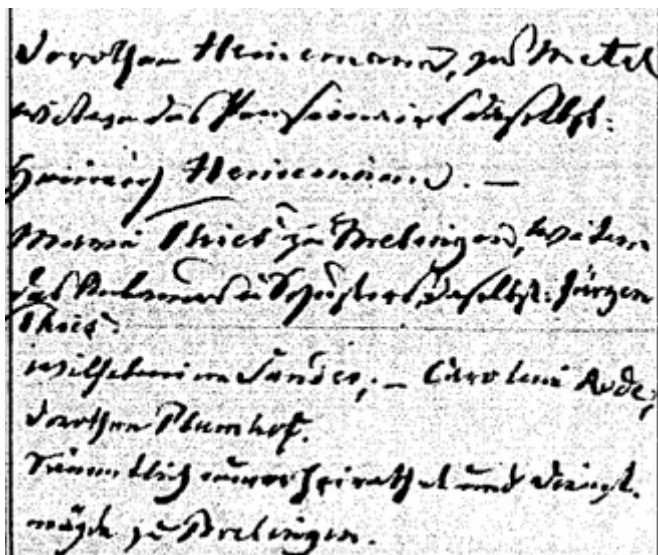 Dorothea Heinemann, zu Metel
Witwe des Pensionairs daselbst:
Heinrich Heinemann. —
Maria Thies zu Brelingen, Witwe
des Anbauers u Schusters daselbst: Jürgen
Thies.
Wilhelmine Sander; — Caroline Rode;
Dorothea Plumhof.
Sämmtlich unverheirathet und Dienst-
mägde zu Brelingen.